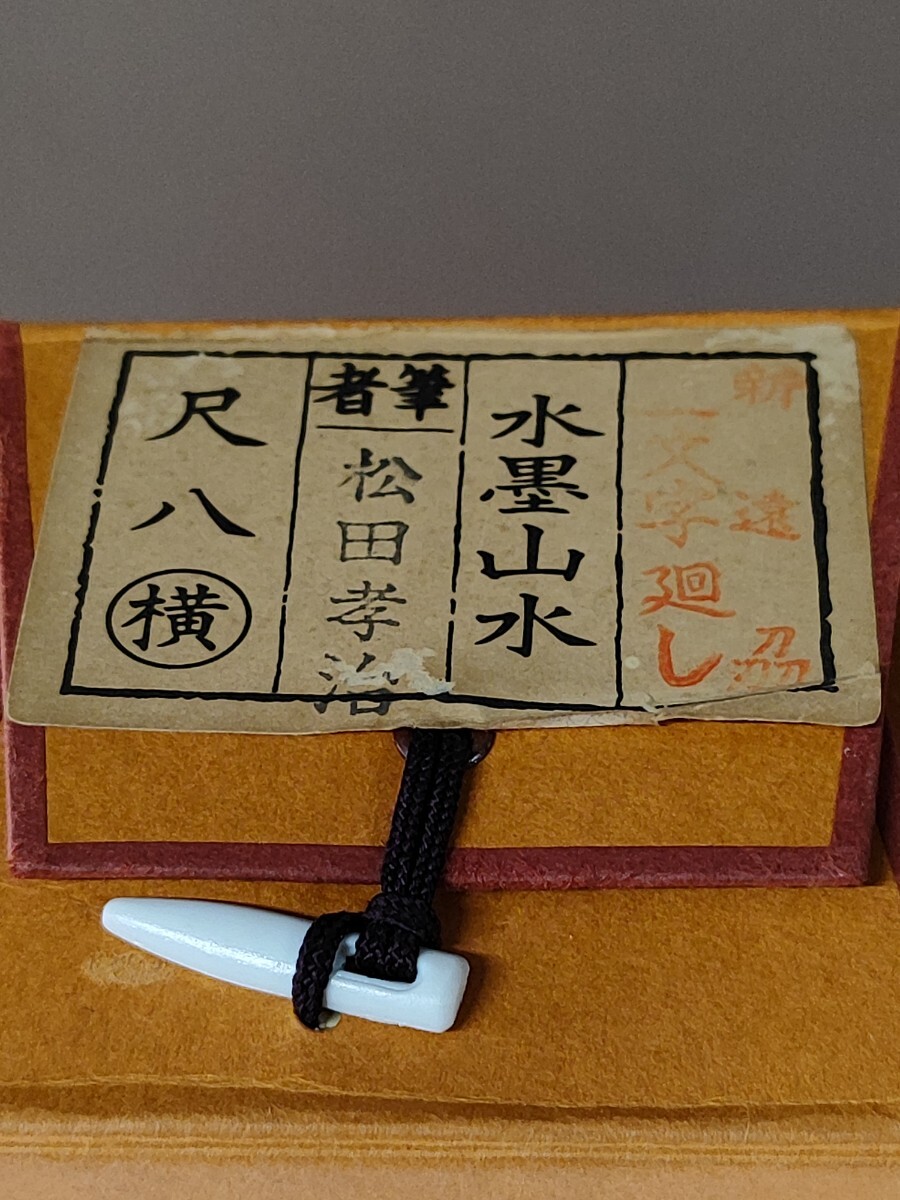 新 遠
一文字廻し
水墨山水
筆者
松田孝治
尺八 横